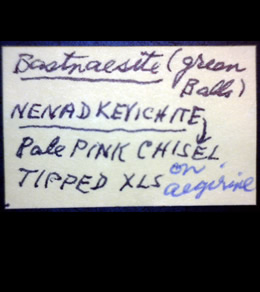 Bastnaesite (green
Balls)
NENADKEVICHITE
Pale PINK CHISEL
TIPPED XLS on aegirine